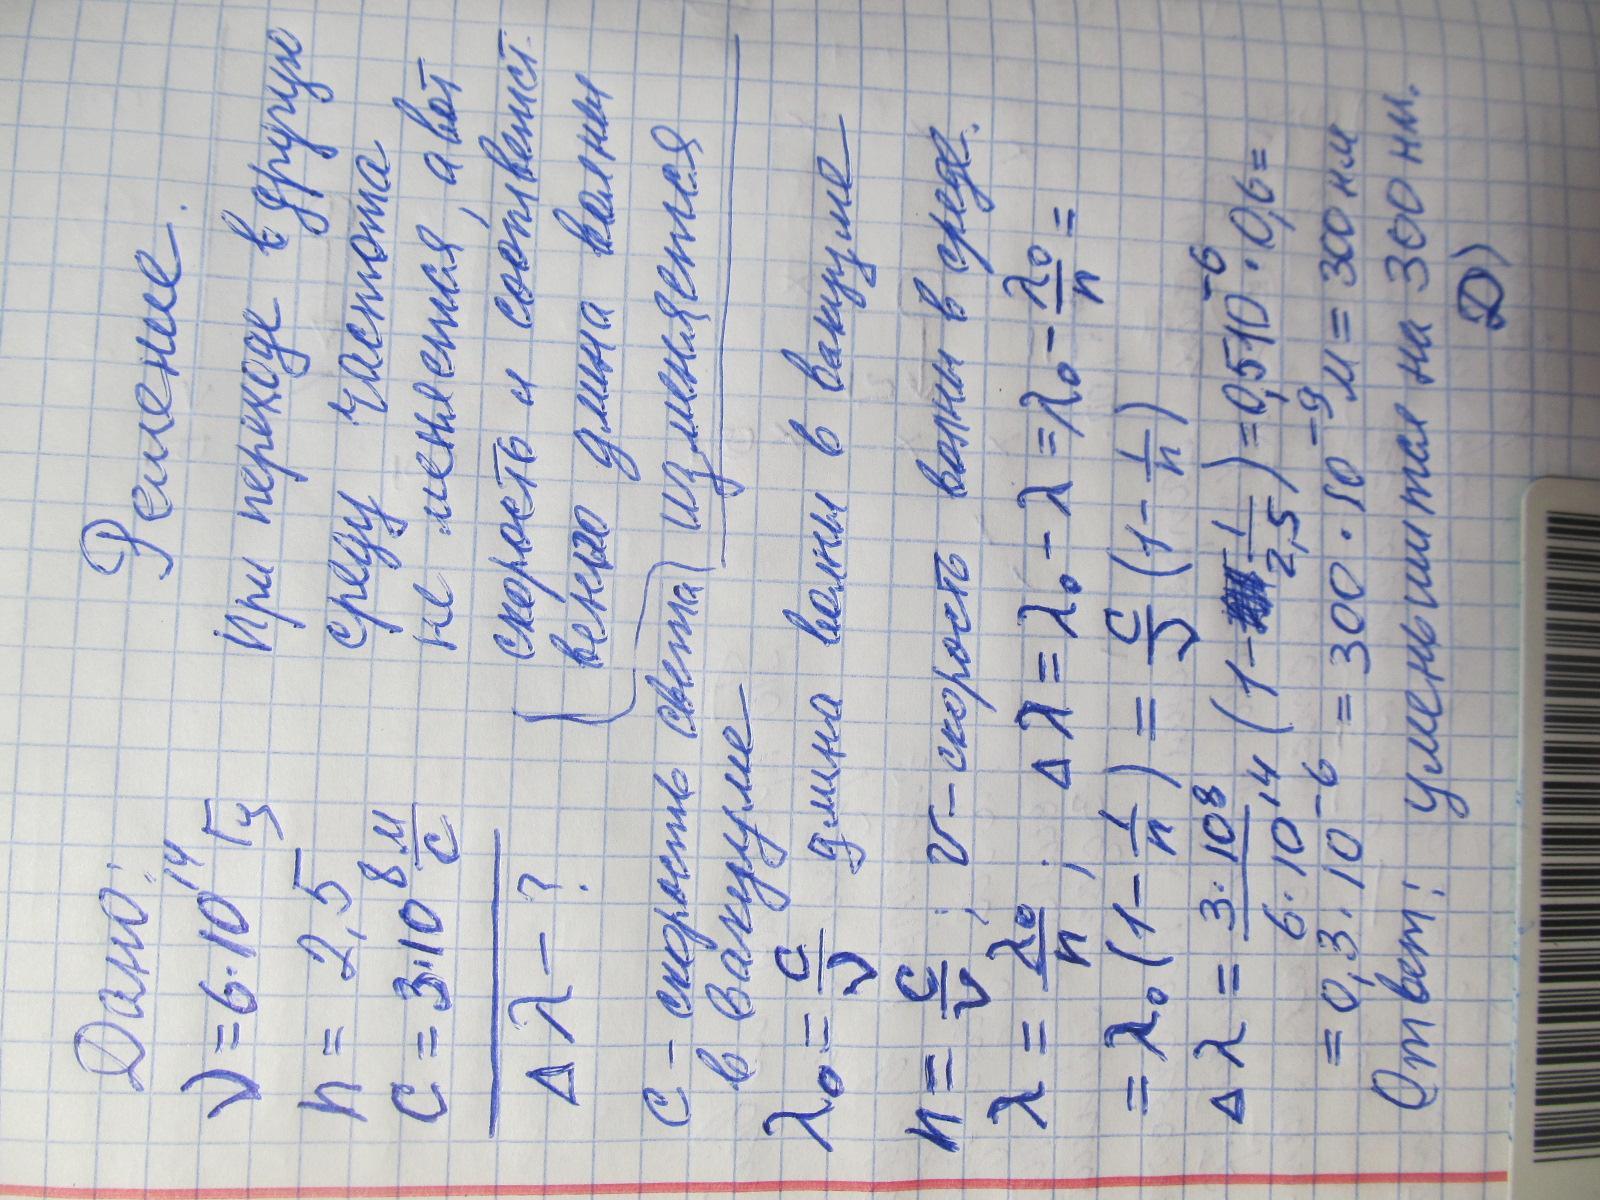 Дано:
ν = 6·10¹⁴ Гц
n = 2,5
C = 3·10⁸ м/с
Δλ - ?
Решение.
При переходе в другую
среду частота
не меняется, а вот
скорость и соответст
венно длина волны
изменяется
C - скорость света
в вакууме
λ₀ = C/ν длина волны в вакууме
n = C/v ; v - скорость волны в среде.
λ = λ₀/n ; Δλ = λ₀ - λ = λ₀ - λ₀/n =
= λ₀ (1 - 1/n) = C/ν (1 - 1/n)
Δλ = 3·10⁸/6·10¹⁴ (1 - 1/2,5) = 0,5 10⁻⁶ · 0,6 =
= 0,3·10⁻⁶ = 300·10⁻⁹ м = 300 нм
Ответ: уменьшится на 300 нм.
D)